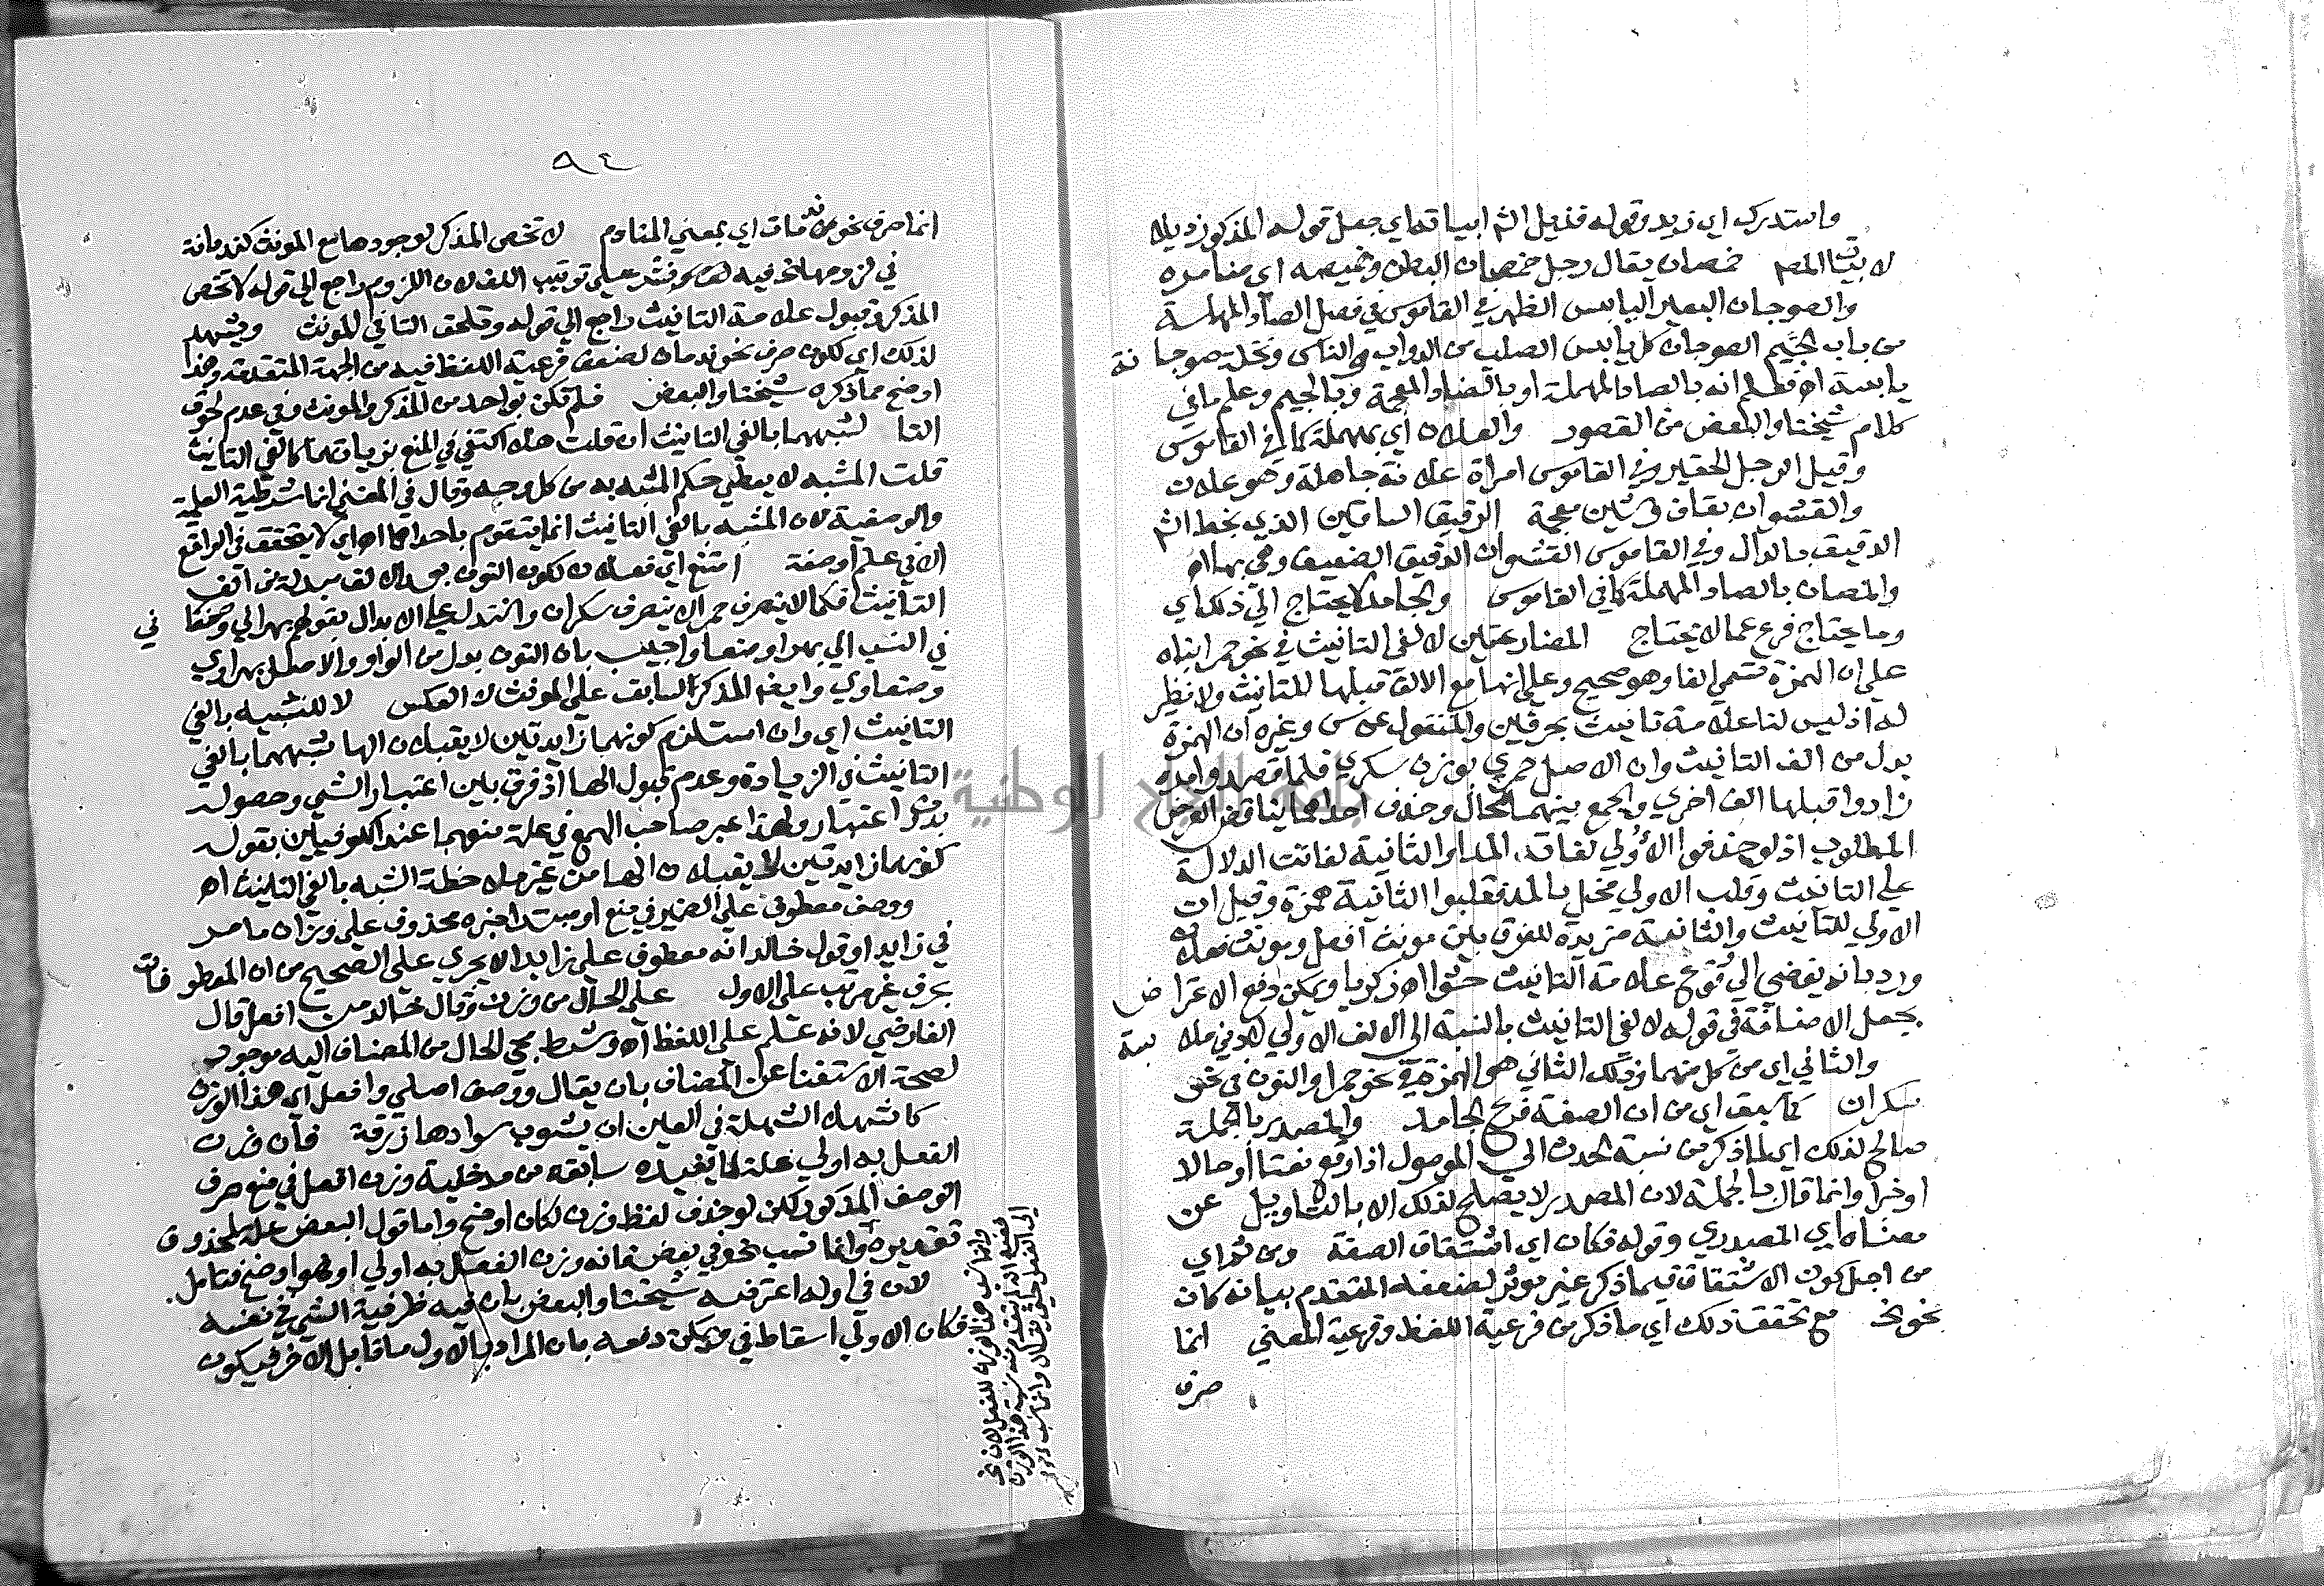 واستدرك اي زيد وقوله فذيل الثم ابياته اي جعل قوله المذكور ذيلا
لابيات المصـ خمصان يقال رجل خمصان البطن وخميصه اي ضامره
والصوجان البعير اليابس الظهر في القاموس في فصل الصاد المهملة
من باب الجيم الصوجان كل يابس الصلب من الدواب والناس ونخلة صوجانة
يابسة اه فظهر انه بالصاد المهملة او بالضاد المعجمة وبالجيم وعلم ما في
كلام شيخنا والبعض من القصور والعلان اي بمهملة كما في القاموس
وقيل الرجل الحقير وفي القاموس امراة علانة جاهلة وهو علان
والقشوان بقاف فشين معجمة الرقيق الساقين الذي بخط الثم
الدقيق بالدال وفي القاموس القشوان الدقيق الضعيف وهي بهاء اه
والمصان بالصاد المهملة كما في القاموس والجامد لا يحتاج الي ذلك اي
وما يحتاج فرع عما لا يحتاج المضارعتين لالفي التانيث في نحو حمرا بناه
علي ان الهمزة تسمي الفا وهو صحيح وعلي انها مع الالف قبلها للتانيث ولا نظير
له اذ ليس لنا علامة تانيث بحرفين والمنقول عن س وغيره ان الهمزة
بدل من الف التانيث وان الاصل حمري بوزن سكري فلما قصدوا مده
زادوا قبلها الفا اخري والجمع بينهما محال وحذف احدهما يناقض الغرض
المطلوب اذ لو حذفوا الاولي لفات المد او الثانية لفاتت الدلالة
علي التانيث وقلب الاولي مخل بالمد فقلبوا الثانية همزة وقيل ان
الاولي للتانيث والثانية مزيدة للفرق بين مونث افعل ومونث فعلان
ورد بانه يفضي الي وقوع علامة التانيث حشوا اه زكريا ويمكن دفع الاعتراض
بجعل الاضافة في قوله لالفي التانيث بالنسبة الي الالف الاولي لادني ملابسة
والثاني اي من كل منهما وذلك الثاني هو الهمزة في نحو حمرا والنون في نحو
سكران كما سبق اي من ان الصفة فرع الجامد والمصدر بالجملة
صالح لذلك اي لما ذكر من نسبة الحدث الي الموصول اذا وقع نعتا او حالا
او خبرا وانما قال بالجملة لان المصدر لا يصلح لذلك الا بالتاويل عن
معناه اي المصدري وقوله فكان اي اشتقاق الصفة ومن ثم اي
من اجل كون الاشتقاق فيما ذكر غير موثر لضعفه المتقدم بيانه كان
نحو مع تحقق ذلك اي ما ذكر من فرعية اللفظ وفرعية المعني انما
صرف
٩٤
انما صرف نحو ندمان اي بمعني المنادم لا تخص المذكر لوجودها مع المونث كندمانة
في لزومها فيه لف ونشر علي ترتيب اللف لان اللزوم راجع الي قوله لا تخص
المذكر وقبول علامة التانيث راجع الي قوله وتلحق التا في المونث ويشهد
لذلك اي لكون صرف نحو ندمان لضعف فرعية اللفظ فيه من الجهة المتقدمة وهذا
اوضح مما ذكره شيخنا والبعض فلم تكن بواحد من المذكر والمونث وفي عدم لحوق
التا لشبههما بالفي التانيث ان قلت هلا اكتفي في المنع بزيادتهما كالفي التانيث
قلت المشبه لا يعطي حكم المشبه به من كل وجه وقال في المغني انما شرطية العلمية
والوصفية لان المشبه بالفي التانيث انما يتقوم باحداهما اه اي لا يتحقق في الواقع
الا في علم او صفة امتنع اي فعلان لكون النون بعد الالف مبدلة من الف
التانيث فكما لا ينصرف حمرا لا ينصرف سكران واستدل علي الابدال بقولهم بهراني وصنعاني
في النسب الي بهرا وصنعا واجيب بان النون بدل من الواو والاصل بهراوي
وصنعاوي وايضا المذكر السابق علي المونث لا العكس لا للتشبيه بالفي
التانيث اي وان استلزم كونهما زايدتين لا يقبلان الها شبههما بالفي
التانيث في الزيادة وعدم قبول الها اذ فرق بين اعتبار الشي وحصوله
بدون اعتبار ولهذا عبر صاحب الهمع في علة منعهما عند الكوفيين بقوله
كونهما زايدتين لا يقبلان الها من غير ملاحظة الشبه بالفي التانيث اه
ووصف معطوف علي الضمير في منع او مبتدا خبره محذوف علي وزان ما مر
في زايد او قول خالد انه معطوف علي زايد لا يجري علي الصحيح من ان المعطوفات
بحرف غير مرتب علي الاول علي الحال من وزن وقال خالد من افعل قال
الفارضي لانه علم علي اللفظ اه وشرط مجي الحال من المضاف اليه موجود
لصحة الاستغنا عن المضاف بان يقال ووصف اصلي وافعل اي هذا الوزن
كاشهل الشهلة في العين ان يشوب سوادها زرقة فان وزن
الفعل به اولي علة لما تفيده سابقه من مدخلية وزن افعل في منع صرف
الوصف المذكور لكن لو حذف لفظ وزن لكان اوضح واما قول البعض علة لمحذوف
تقديره وانما نسب نحو في بعض فانه وزن الفعل به اولي او هو اوضح فتامل.
لان في اوله اعترضه شيخنا والبعض بان فيه ظرفية الشي في نفسه
فكان الاولي اسقاط في ويمكن دفعه بان المراد بالاول ما قابل الاخر فيكون
وانما نسب هذا الوزن للفعل لان